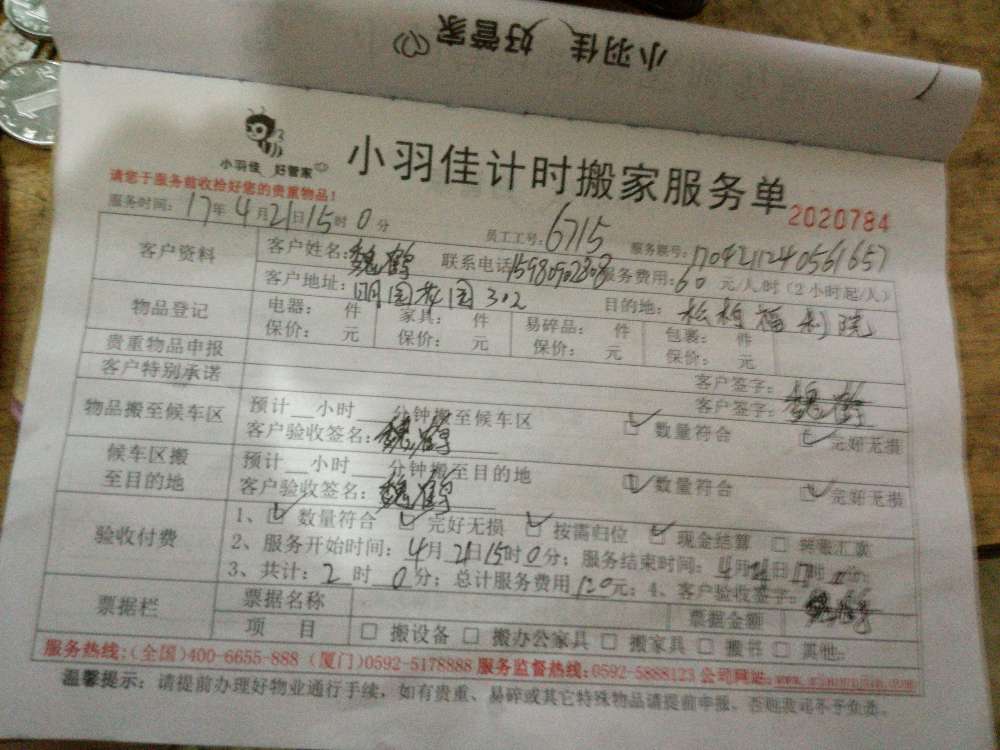 小羽佳 好管家
小羽佳 好管家
小羽佳计时搬家服务单
2020784
请您于服务前收拾好您的贵重物品！
服务时间：17年4月21日15时0分 员工工号：6715 服务联号：1704211240561657
客户资料 客户姓名：魏鹤 联系电话15980902308服务费用：60元/人/时（2小时起/人）
客户地址：明园教园302 目的地：松柏福利院
物品登记 电器： 件 家具： 件 易碎品： 件 包裹： 件
保价： 元 保价： 元 保价： 元 保价： 元
贵重物品申报 客户签字：魏鹤
客户特别承诺 客户签字：魏鹤
物品搬至候车区 预计__小时__分钟搬至候车区 ☑数量符合 ☑完好无损
客户验收签名：魏鹤
候车区搬至目的地 预计__小时__分钟搬至目的地 ☑数量符合 ☑完好无损
客户验收签名：魏鹤
验收付费 1、☑数量符合 ☑完好无损 ☑按需归位 ☑现金结算 □转账汇款
2、服务开始时间：4月21日15时0分；服务结束时间：4月21日17时 分；
3、共计：2时0分；总计服务费用120元；4、客户验收签字：魏鹤
票据栏 票据名称 票据金额
项 目 □搬设备 □搬办公家具 □搬家具 □搬书 □其他：
服务热线：（全国）400-6655-888（厦门）0592-5178888 服务监督热线：0592-5888123 公司网站：
温馨提示：请提前办理好物业通行手续，如有贵重、易碎或其它特殊物品请提前申报，否则我司不予负责。